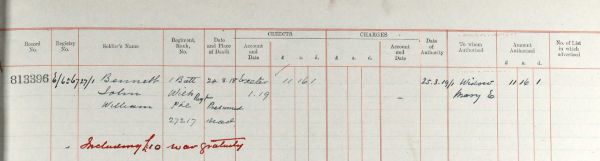 CREDITS CHARGES
Record No. Registry No. Soldier's Name Regiment, Rank, No. Date and Place of Death Account and Date £ s. d. £ s. d. Account and Date Date of Authority To whom Authorised Amount Authorised £ s. d. No. of List in which advertised
813396 E/656737/1 Bennett 1 Batt 24.3.18 Exeter 11 16 1 25.3.19/1 Widow 11 16 1
John Wilts Regt 1.19 Mary E
William Pte Presumed
27217 dead
Including £10 war gratuity